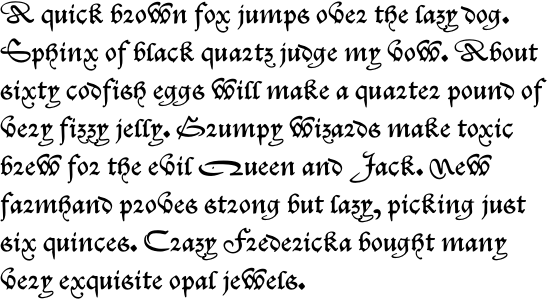 A quick brown fox jumps over the lazy dog.
Sphinx of black quartz judge my vow. About
sixty codfish eggs will make a quarter pound of
very fizzy jelly. Grumpy wizards make toxic
brew for the evil Queen and Jack. New
farmhand proves strong but lazy, picking just
six quinces. Crazy Fredericka bought many
very exquisite opal jewels.